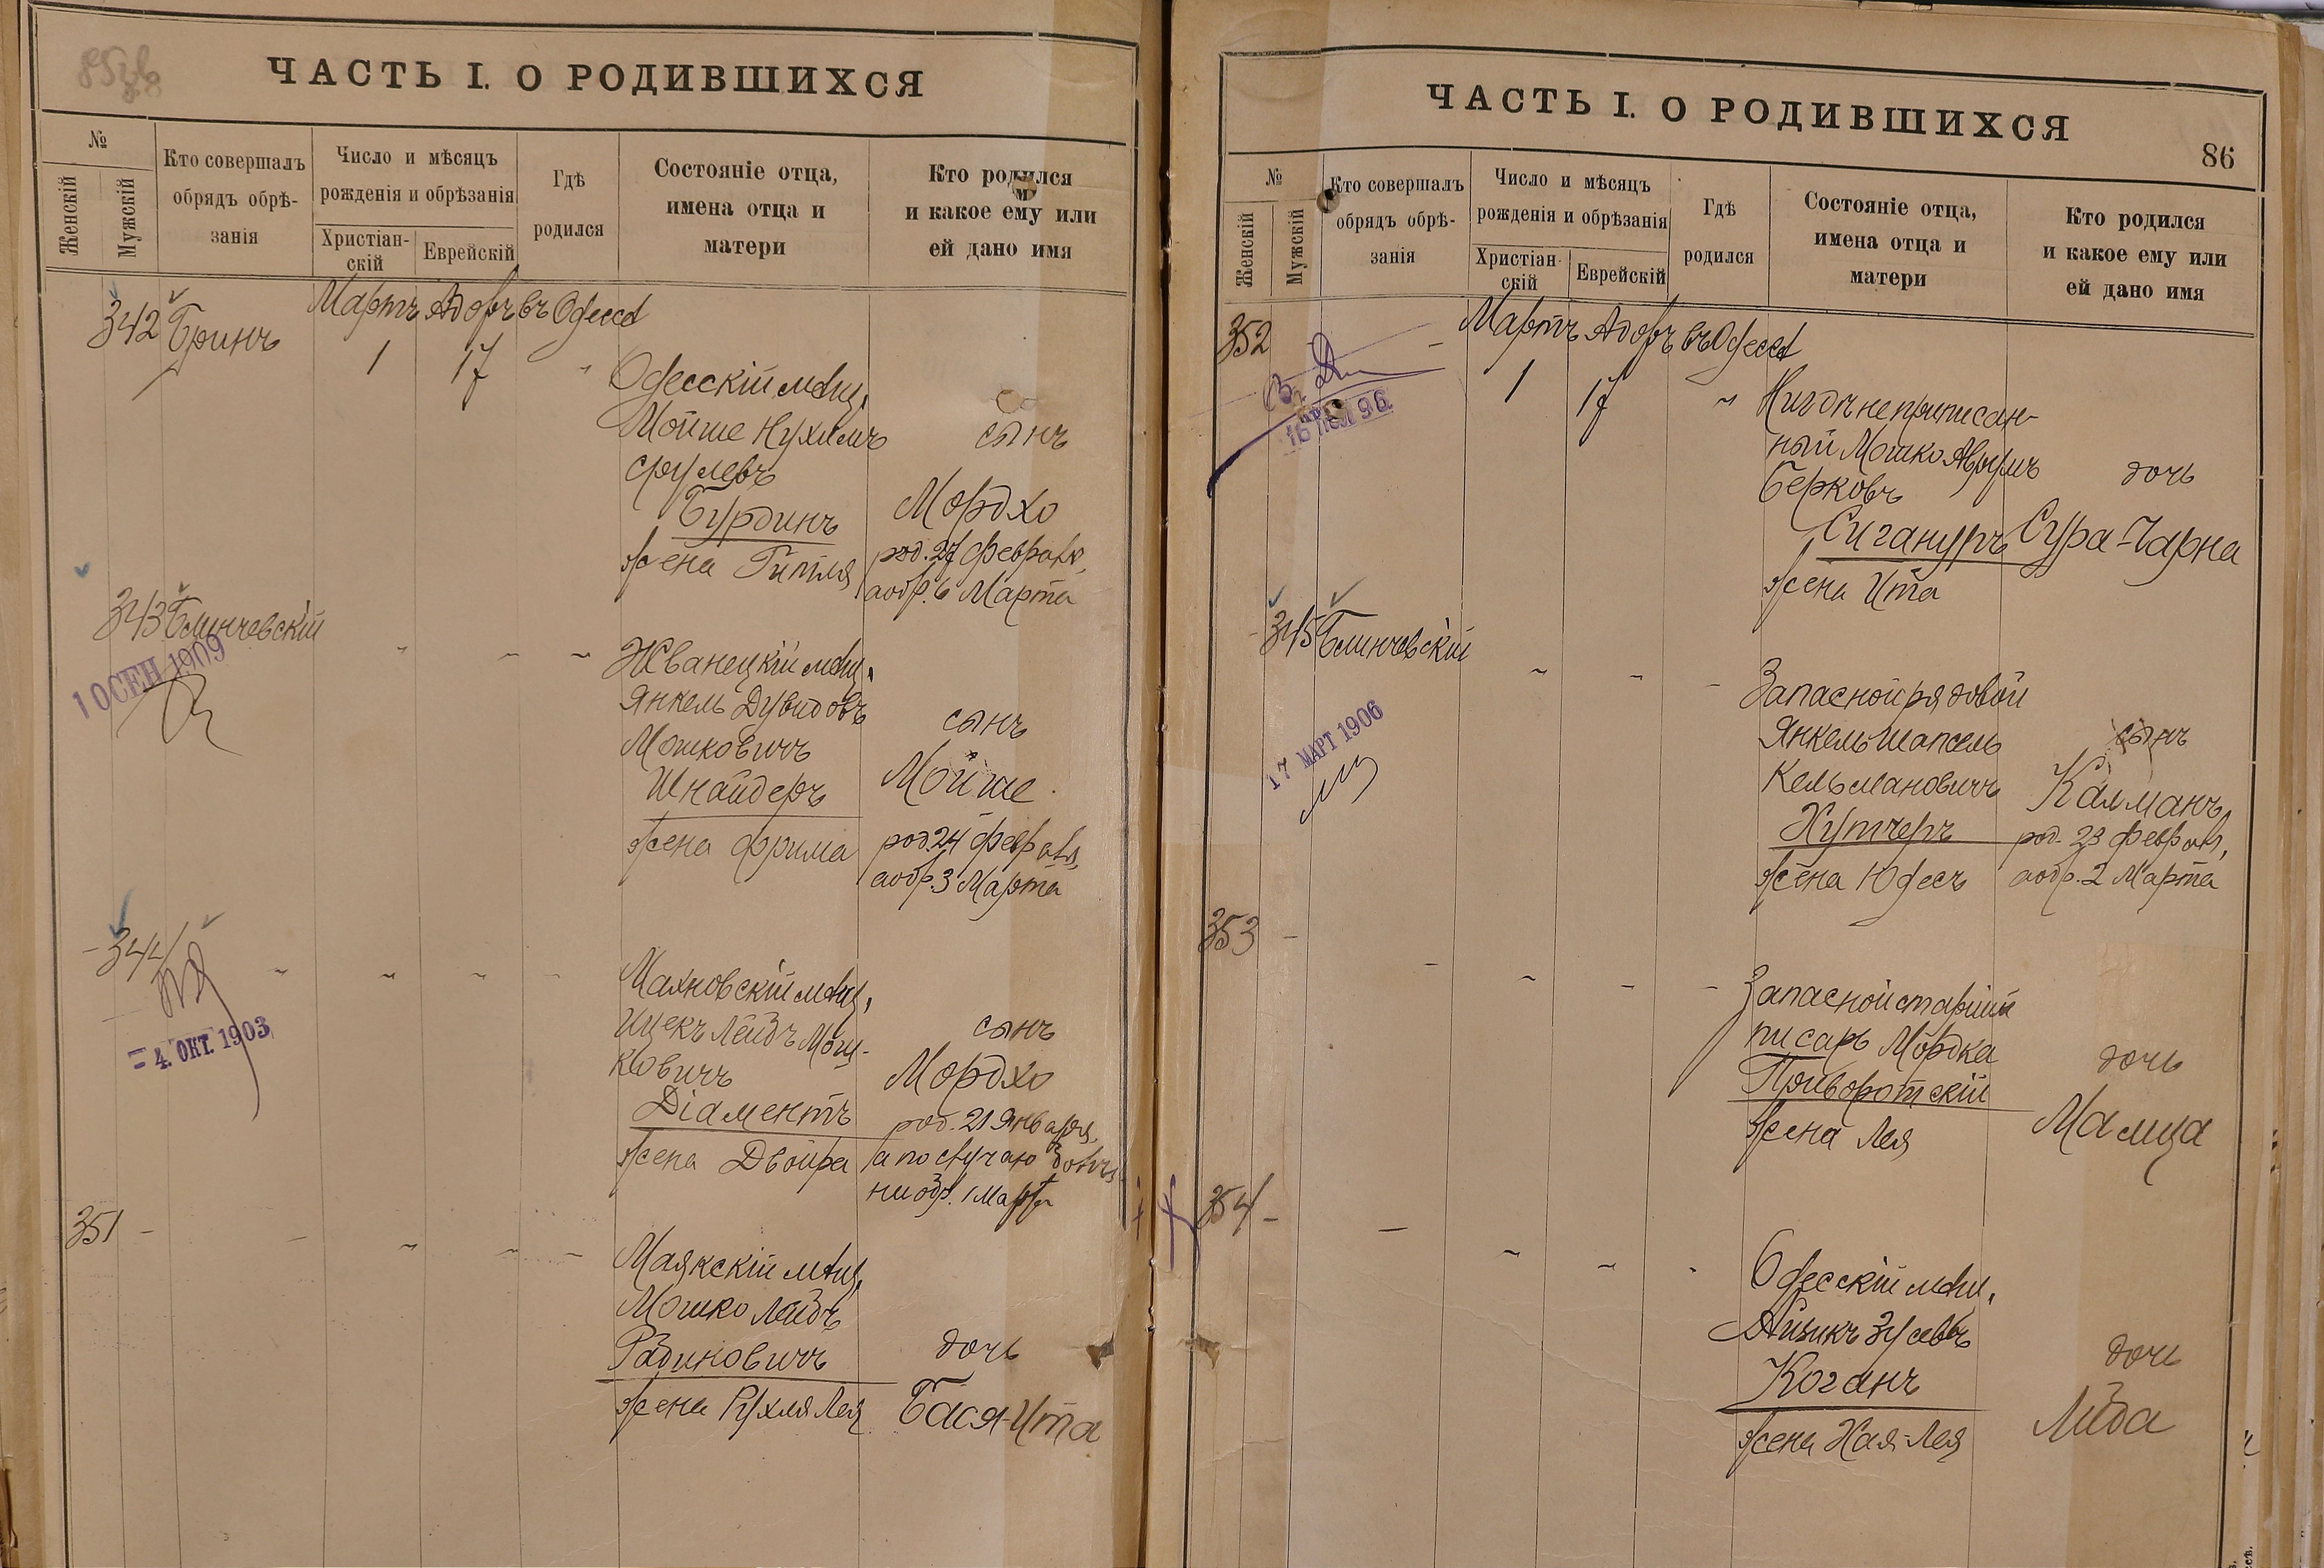 ЧАСТЬ I. О РОДИВШИХСЯ
№
Женскій
Мужскій
Кто совершалъ
обрядъ обрѣ-
занія
Число и мѣсяцъ
рожденія и обрѣзанія
Христіан-
скій
Еврейскій
Гдѣ
родился
Состояніе отца,
имена отца и
матери
Кто родился
и какое ему или
ей дано имя
Мартъ Адаръ въ Одессѣ
342 Бринъ
1 17 "
Одесскій мѣщ.
Мойше Нухимъ
Срулевъ
Бурдинъ
жена Гитля
сынъ
Мордхо
род. 27 февраля,
а обр. 6 Марта
343 Блинчевскій
10 СЕН 1909
Жванецкій мѣщ.
Янкель Дувидовъ
Мошковичъ
Шнайдеръ
жена Фрима
сынъ
Мойше
род. 24 февраля,
а обр. 3 Марта
344
= 4. ОКТ. 1903
Махновскій мѣщ.
Ицекъ Лейбъ Мош-
ковичъ
Діаментъ
жена Двойра
сынъ
Мордхо
род. 21 Января,
а по случаю болѣз-
ни обр. 1 Марта
351
Маякскій мѣщ.
Мошко Лейбъ
Рабиновичъ
жена Рухля Лея
дочь
Бася-Ита
ЧАСТЬ I. О РОДИВШИХСЯ
86
№
Женскій
Мужскій
Кто совершалъ
обрядъ обрѣ-
занія
Число и мѣсяцъ
рожденія и обрѣзанія
Христіан-
скій
Еврейскій
Гдѣ
родился
Состояніе отца,
имена отца и
матери
Кто родился
и какое ему или
ей дано имя
Мартъ Адаръ въ Одессѣ
352
1 17 "
Нигдѣ неприписан-
ный Мошко Аврумъ
Берковъ
Сигануръ
жена Ита
дочь
Сура-Чарна
345 Блинчевскій
17 МАРТ 1906
Запасной рядовой
Янкель Шапсель
Кельмановичъ
Хутчеръ
жена Юдесъ
сынъ
Калманъ
род. 23 февраля,
а обр. 2 Марта
353
Запасной старшій
писарь Мордка
Приворотскій
жена Лея
дочь
Малца
354
Одесскій мѣщ.
Айзикъ Зусевъ
Коганъ
жена Хая-Лея
дочь
Либа